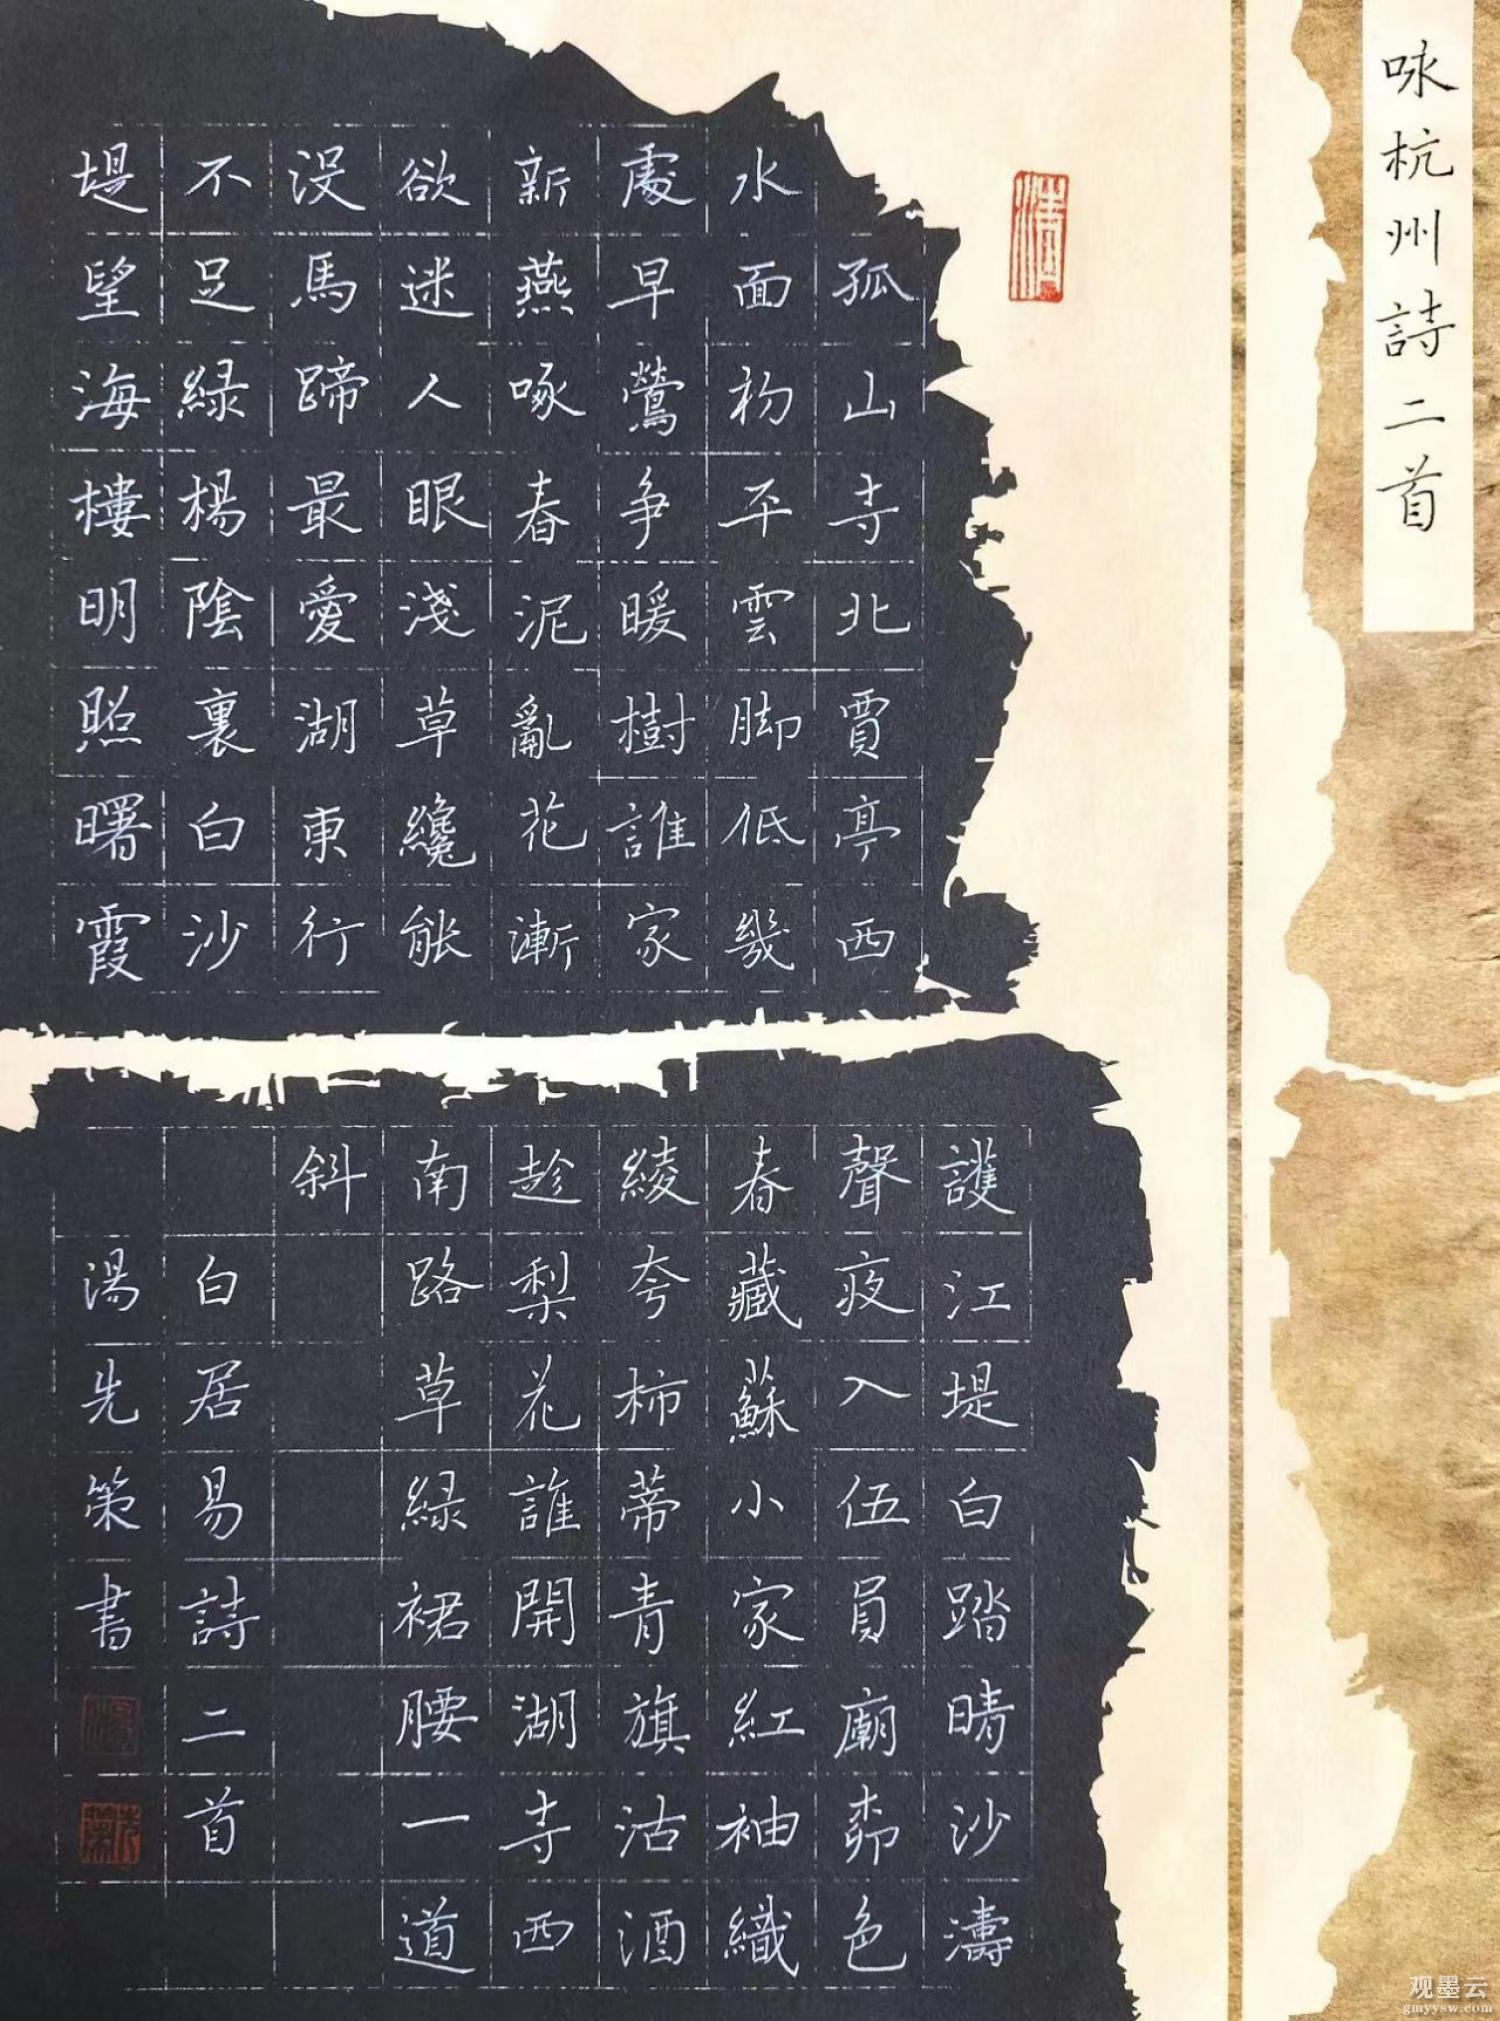 咏杭州詩二首
孤山寺北賈亭西
水面初平雲脚低幾
處早鶯爭暖樹誰家
新燕啄春泥亂花漸
欲迷人眼淺草纔能
没馬蹄最愛湖東行
不足綠楊陰裏白沙
堤望海樓明照曙霞
護江堤白踏晴沙濤
聲夜入伍員廟柳色
春藏蘇小家紅袖織
綾夸柿蒂青旗沽酒
趁梨花誰開湖寺西
南路草綠裙腰一道
斜
白居易詩二首
湯先策書
观墨云
gmyysw.com